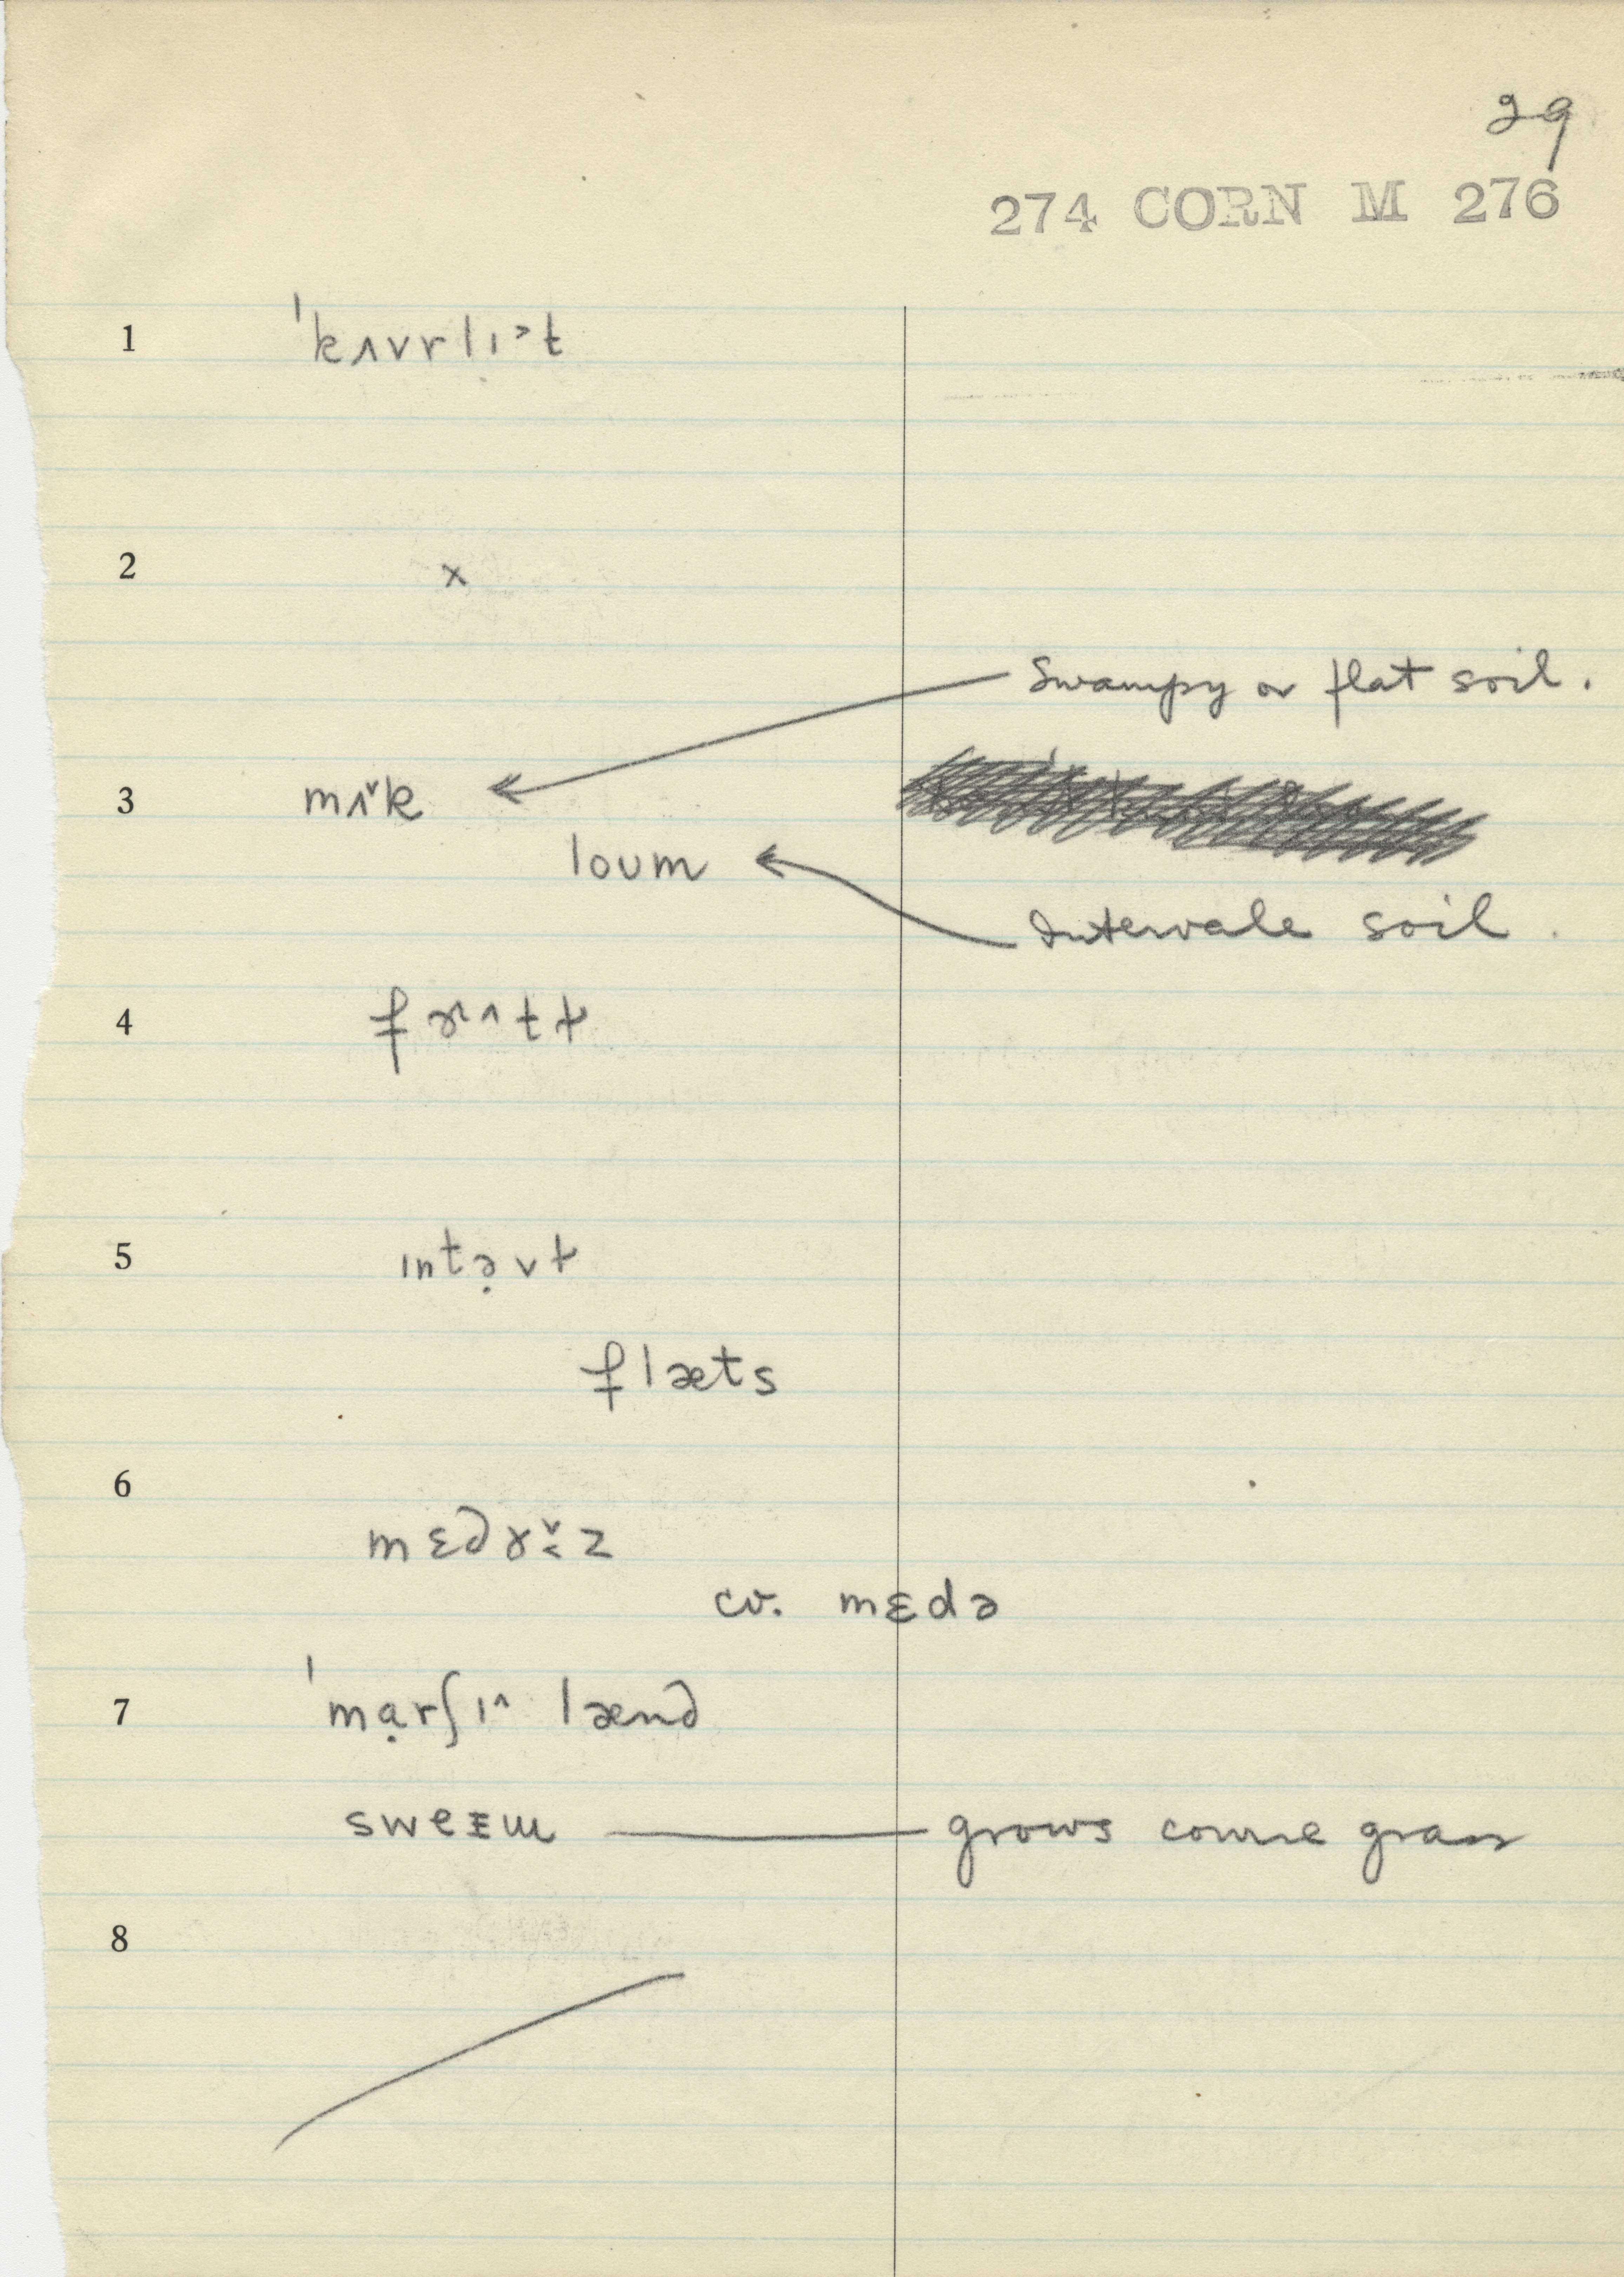 29
274 CORN M 276
1 ˈkʌvrlɪ˃t
2 x
Swampy or flat soil.
3 mʌ˅k
loum
Intervale soil.
4 fɚ^tɫ
5 ɪntə̣vɫ
flæts
6
mɛdɤ˅˂z
cv. mɛdə
7 ˈmạrʃɪ^ lænd
sweɪɯ grows course grass
8